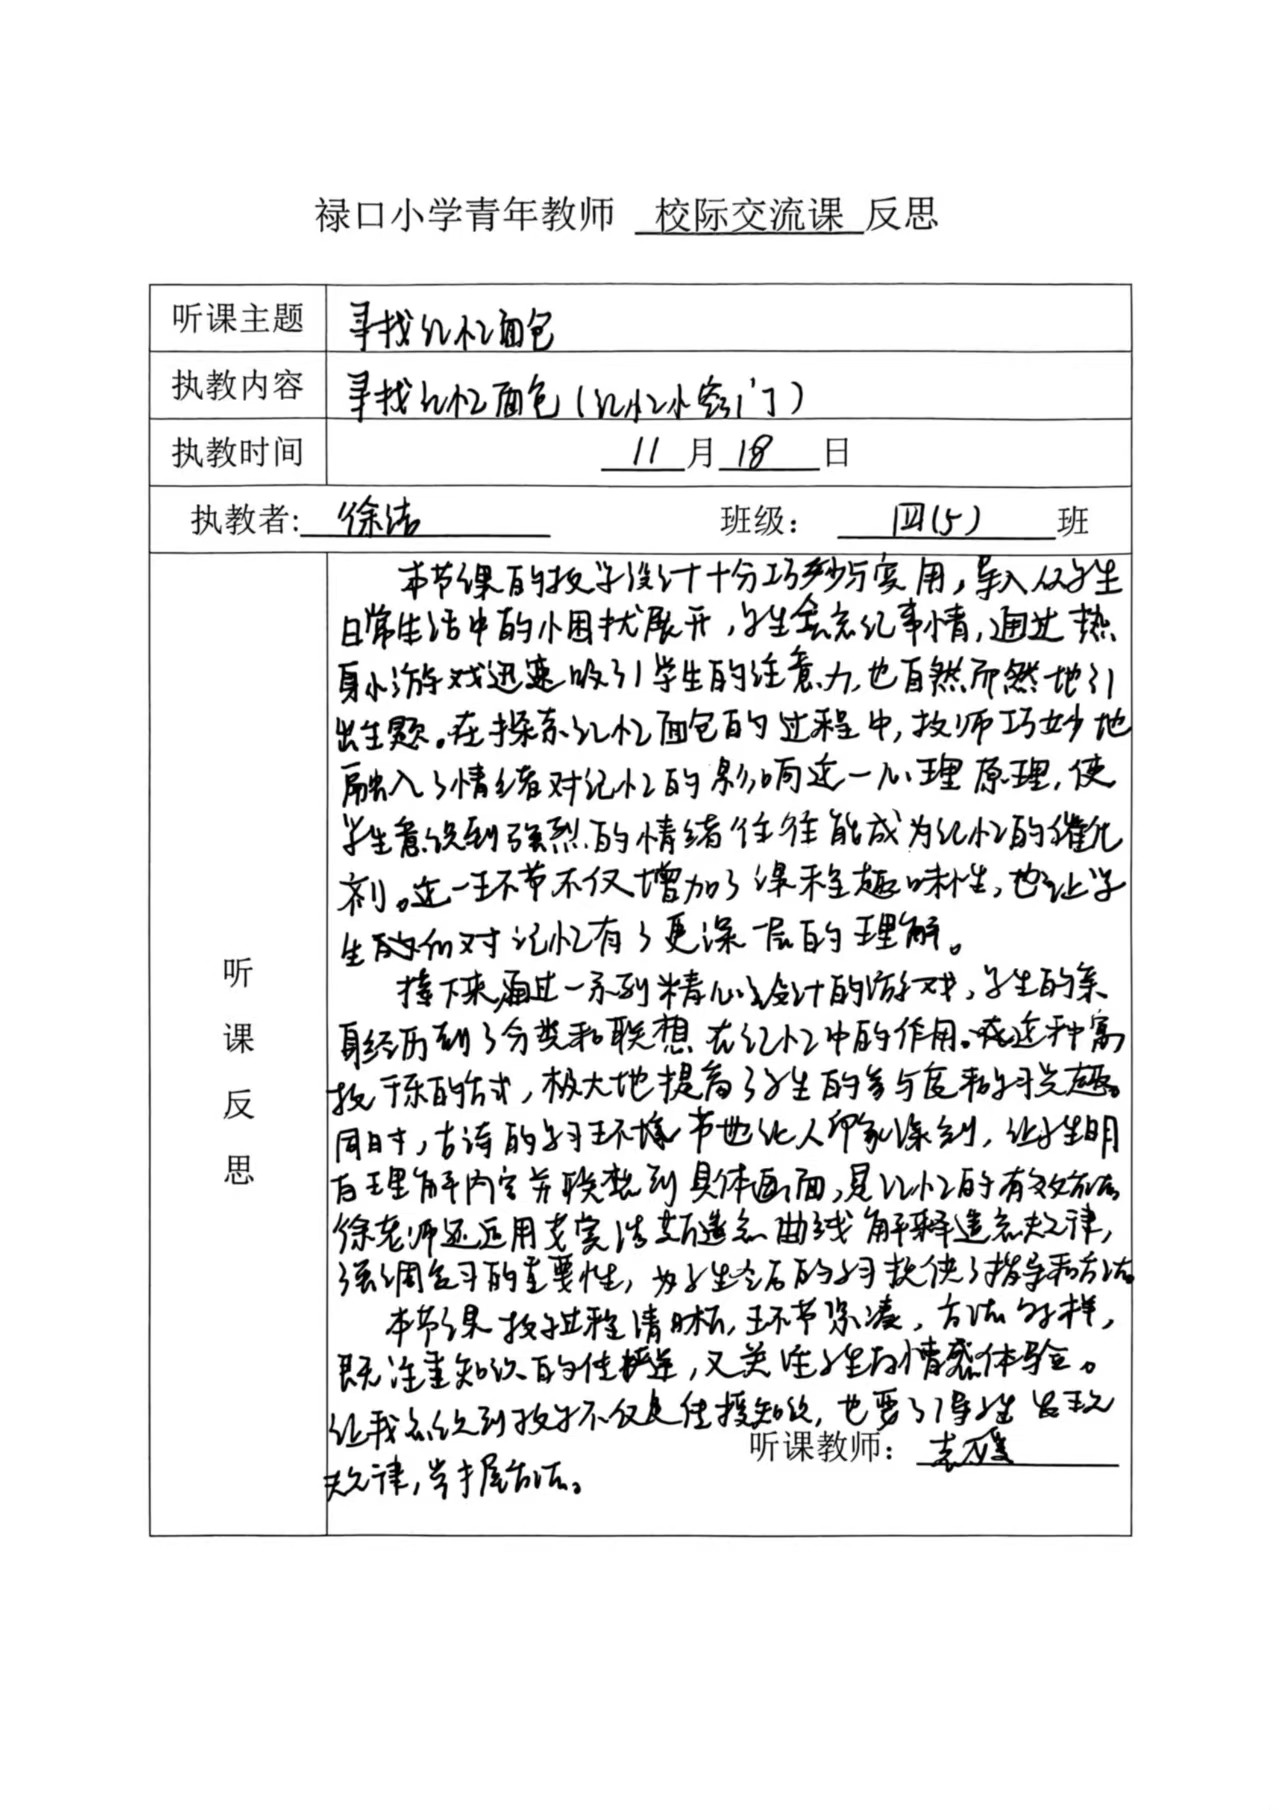 禄口小学青年教师 校际交流课 反思
听课主题 寻找记忆面包
执教内容 寻找记忆面包(记忆小窍门)
执教时间 11月18日
执教者: 徐洁 班级: 四(5) 班
听课反思
本节课的教学设计十分巧妙与实用,导入从学生
日常生活中的小困扰展开,学生会忘记事情,通过热
身小游戏迅速吸引学生的注意力,也自然而然地引
出主题。在探索记忆面包的过程中,教师巧妙地
融入了情绪对记忆的影响这一心理原理,使
学生意识到强烈的情绪往往能成为记忆的催化
剂。这一环节不仅增加了课程趣味性,也让学
生们对记忆有了更深一层的理解。
接下来,通过一系列精心设计的游戏,学生的亲
身经历到了分类和联想在记忆中的作用。这种寓
教于乐的方式,极大地提高了学生的参与度和学习兴趣。
同时,古诗的学习环节也让人印象深刻,让学生明
白理解内容并联想到具体画面,是记忆的有效方法
徐老师还运用艾宾浩斯遗忘曲线解释遗忘规律,
强调复习的重要性,为学生今后的学习提供了指导和方法。
本节课教学过程清晰,环节紧凑,方法多样,
既注重知识的传递,又关注学生的情感体验。
让我意识到教学不仅是传授知识,也要引导学生发现
规律,掌握方法。
听课教师: 袁媛